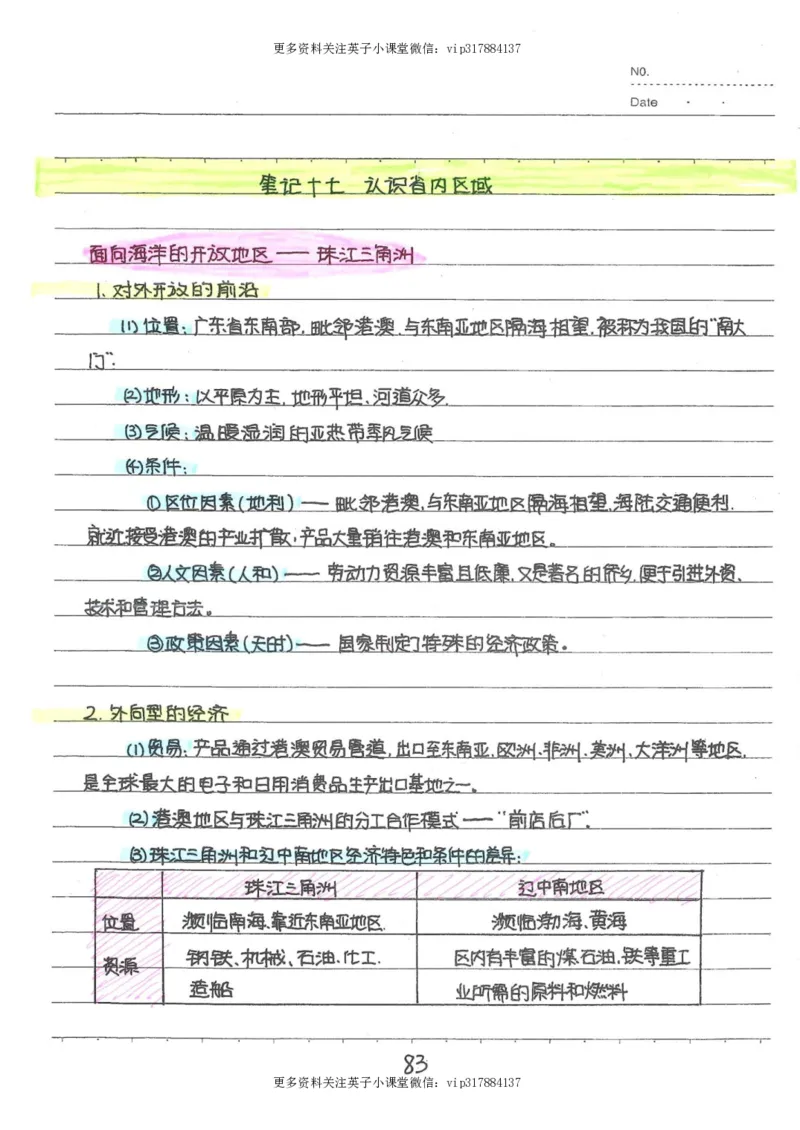 更多资料关注英子小课堂微信：vip317884137
NO.
Date
笔记十七 认识省内区域
面向海洋的开放地区——珠江三角洲
1. 对外开放的前沿
(1) 位置：广东省东南部，毗邻港澳，与东南亚地区隔海相望，被称为我国的“南大
门”。
(2) 地形：以平原为主，地形平坦、河道众多.
(3) 气候：温暖湿润的亚热带季风气候
(4) 条件：
①区位因素（地利）—— 毗邻港澳，与东南亚地区隔海相望，海陆交通便利.
就近接受港澳的产业扩散，产品大量销往港澳和东南亚地区。
②人文因素（人和）—— 劳动力资源丰富且低廉，又是著名的侨乡，便于引进外资、
技术和管理方法。
③政策因素（天时）—— 国家制定了特殊的经济政策。
2. 外向型的经济
(1) 贸易：产品通过港澳贸易管道，出口至东南亚、欧洲、非洲、美洲、大洋洲等地区，
是全球最大的电子和日用消费品生产出口基地之一。
(2) 港澳地区与珠江三角洲的分工合作模式——“前店后厂”.
(3) 珠江三角洲和辽中南地区经济特色和条件的差异：
珠江三角洲 辽中南地区
位置 濒临南海、靠近东南亚地区. 濒临渤海、黄海
资源 钢铁、机械、石油、化工. 区内有丰富的煤、石油、铁等重工
造船 业所需的原料和燃料
83
更多资料关注英子小课堂微信：vip317884137